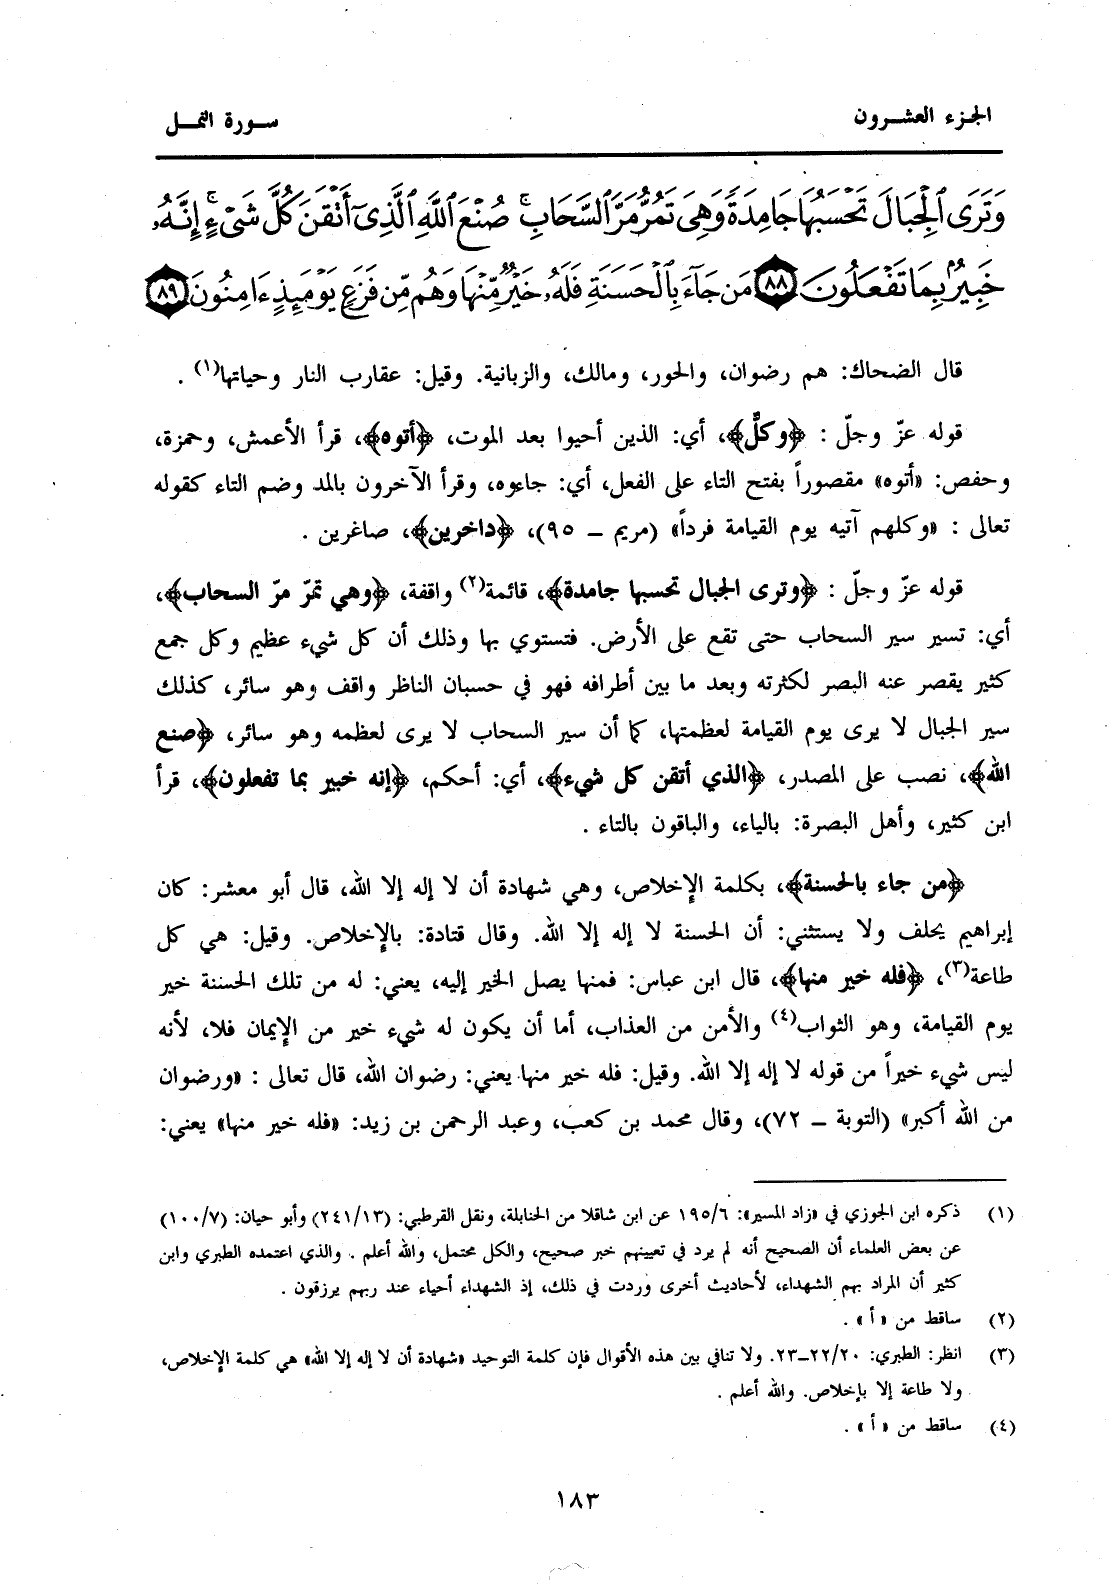 الجزء العشرون
سورة النمل
وَتَرَى ٱلْجِبَالَ تَحْسَبُهَا جَامِدَةً وَهِىَ تَمُرُّ مَرَّ ٱلسَّحَابِ ۚ صُنْعَ ٱللَّهِ ٱلَّذِىٓ أَتْقَنَ كُلَّ شَىْءٍ ۚ إِنَّهُۥ
خَبِيرٌۢ بِمَا تَفْعَلُونَ ٨٨ مَن جَآءَ بِٱلْحَسَنَةِ فَلَهُۥ خَيْرٌ مِّنْهَا وَهُم مِّن فَزَعٍ يَوْمَئِذٍ ءَامِنُونَ ٨٩
قال الضحاك: هم رضوان، والحور، ومالك، والزبانية. وقيل: عقارب النار وحياتها(١) .
قوله عزّ وجلّ : ﴿وكلٌّ﴾، أي: الذين أحيوا بعد الموت، ﴿أتوه﴾، قرأ الأعمش، وحمزة،
وحفص: «أتوه» مقصوراً بفتح التاء على الفعل، أي: جاءوه، وقرأ الآخرون بالمد وضم التاء كقوله
تعالى : «وكلهم آتيه يوم القيامة فرداً» (مريم ــ ٩٥)، ﴿داخرين﴾، صاغرين .
قوله عزّ وجلّ : ﴿وترى الجبال تحسبها جامدة﴾، قائمة(٢) واقفة، ﴿وهي تمرّ مرّ السحاب﴾،
أي: تسير سير السحاب حتى تقع على الأرض. فتستوي بها وذلك أن كل شيء عظيم وكل جمع
كثير يقصر عنه البصر لكثرته وبعد ما بين أطرافه فهو في حسبان الناظر واقف وهو سائر، كذلك
سير الجبال لا يرى يوم القيامة لعظمتها، كما أن سير السحاب لا يرى لعظمه وهو سائر، ﴿صنع
الله﴾، نصب على المصدر، ﴿الذي أتقن كل شيء﴾، أي: أحكم، ﴿إنه خبير بما تفعلون﴾، قرأ
ابن كثير، وأهل البصرة: بالياء، والباقون بالتاء .
﴿من جاء بالحسنة﴾، بكلمة الإخلاص، وهي شهادة أن لا إله إلا الله، قال أبو معشر: كان
إبراهيم يحلف ولا يستثني: أن الحسنة لا إله إلا الله. وقال قتادة: بالإخلاص. وقيل: هي كل
طاعة(٣)، ﴿فله خير منها﴾، قال ابن عباس: فمنها يصل الخير إليه، يعني: له من تلك الحسنة خير
يوم القيامة، وهو الثواب(٤) والأمن من العذاب، أما أن يكون له شيء خير من الإيمان فلا، لأنه
ليس شيء خيراً من قوله لا إله إلا الله. وقيل: فله خير منها يعني: رضوان الله، قال تعالى : «ورضوان
من الله أكبر» (التوبة ــ ٧٢)، وقال محمد بن كعب، وعبد الرحمن بن زيد: «فله خير منها» يعني:
(١) ذكره ابن الجوزي في «زاد المسير»: ١٩٥/٦ عن ابن شاقلا من الحنابلة، ونقل القرطبي: (٢٤١/١٣) وأبو حيان: (١٠٠/٧)
عن بعض العلماء أن الصحيح أنه لم يرد في تعيينهم خبر صحيح، والكل محتمل، والله أعلم . والذي اعتمده الطبري وابن
كثير أن المراد بهم الشهداء، لأحاديث أخرى وردت في ذلك، إذ الشهداء أحياء عند ربهم يرزقون .
(٢) ساقط من «أ» .
(٣) انظر: الطبري: ٢٢/٢٠ــ٢٣. ولا تنافي بين هذه الأقوال فإن كلمة التوحيد «شهادة أن لا إله إلا الله» هي كلمة الإخلاص،
ولا طاعة إلا بإخلاص. والله أعلم .
(٤) ساقط من «أ» .
١٨٣